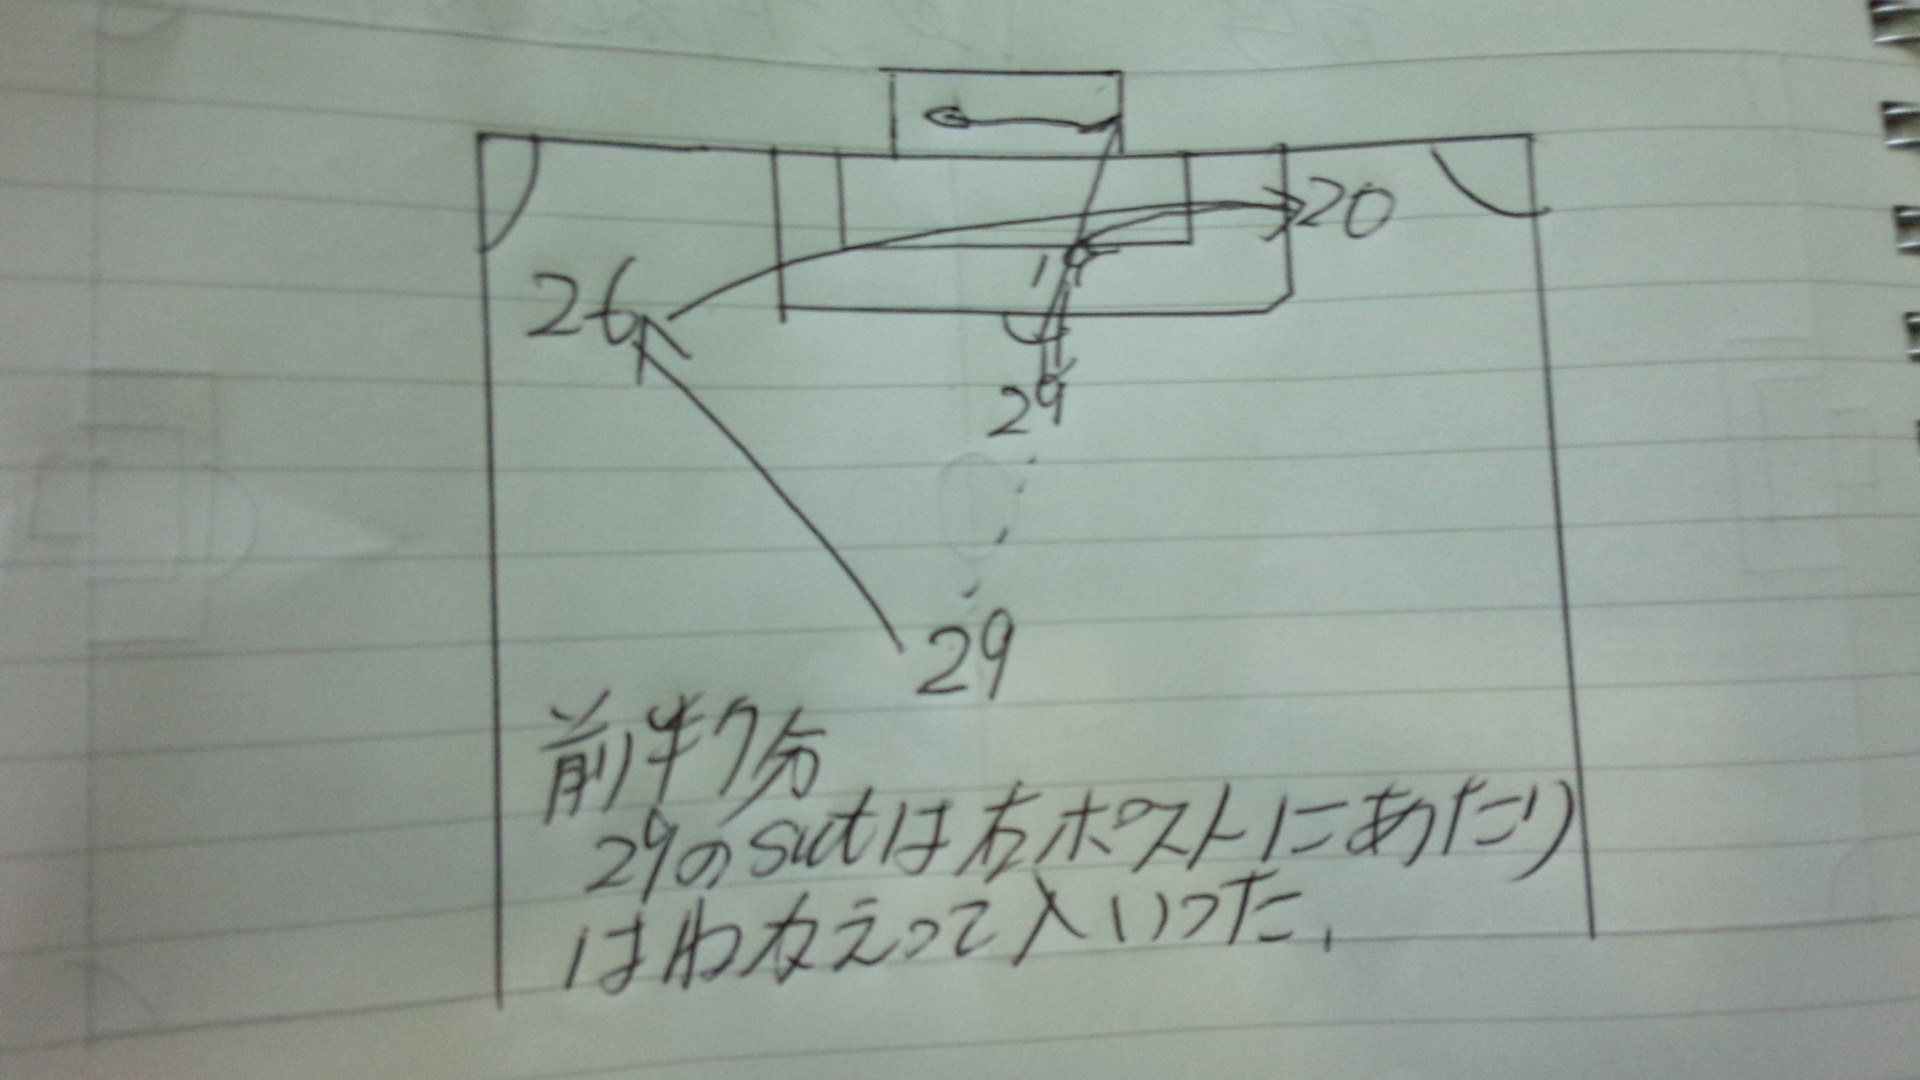 20
26
29
29
前半7分
29のsutは右ポストにあたり
はねかえって入いった.